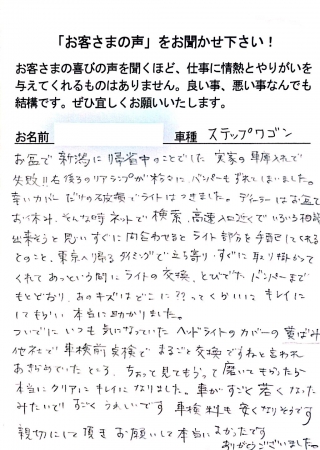 「お客さまの声」をお聞かせ下さい！
お客さまの喜びの声を聞くほど、仕事に情熱とやりがいを
与えてくれるものはありません。良い事、悪い事なんでも
結構です。ぜひ宜しくお願いいたします。
お名前 車種 ステップワゴン
お盆で新潟に帰省中のことでした 実家の車庫入れで
失敗!!右後ろのリアランプが粉々に バンパーもずれてしまいました。
幸いカバーだけの破損でライトはつきました。ディーラーはお盆で
お休み、そんな時ネットで検索、高速入口近くでいろいろ相談
出来そうと思いすぐに問合わせるとライト部分を手配してくれる
とのこと、東京へ帰るタイミングで立ち寄り、すぐに取り掛かって
くれてあっという間にライトの交換、とびでたバンパーまで
もとどおり、あのキズはどこに??ってくらいに キレイに
してもらい 本当に助かりました。
ついでに いつも気になっていた ヘッドライトのカバーの黄ばみ
他社で車検前点検で まるごと交換ですねと言われ
あきらめていたところ、ちょっと見てもらって磨いてもらったら
本当にクリアにキレイになりました。車がすごく若くなった
みたいで すごく うれしいです 車検料も安くなりそうです
親切にして頂き お願いして本当に よかったです
ありがとうございました。